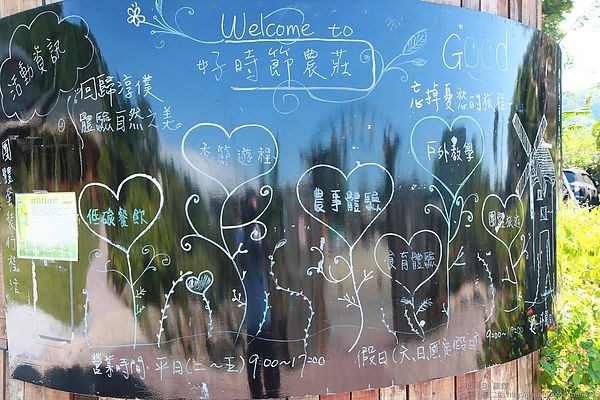 Welcome to
好時節農莊
Good
活動資訊
回歸淳樸
體驗自然之美。
忘掉憂愁的旅程
季節遊程
戶外教學
低碳餐飲
農事體驗
食育體驗
團體旅遊
營業時間：平日(二～五) 9:00～17:00
假日(六、日、國定假日)
9:00～17:00